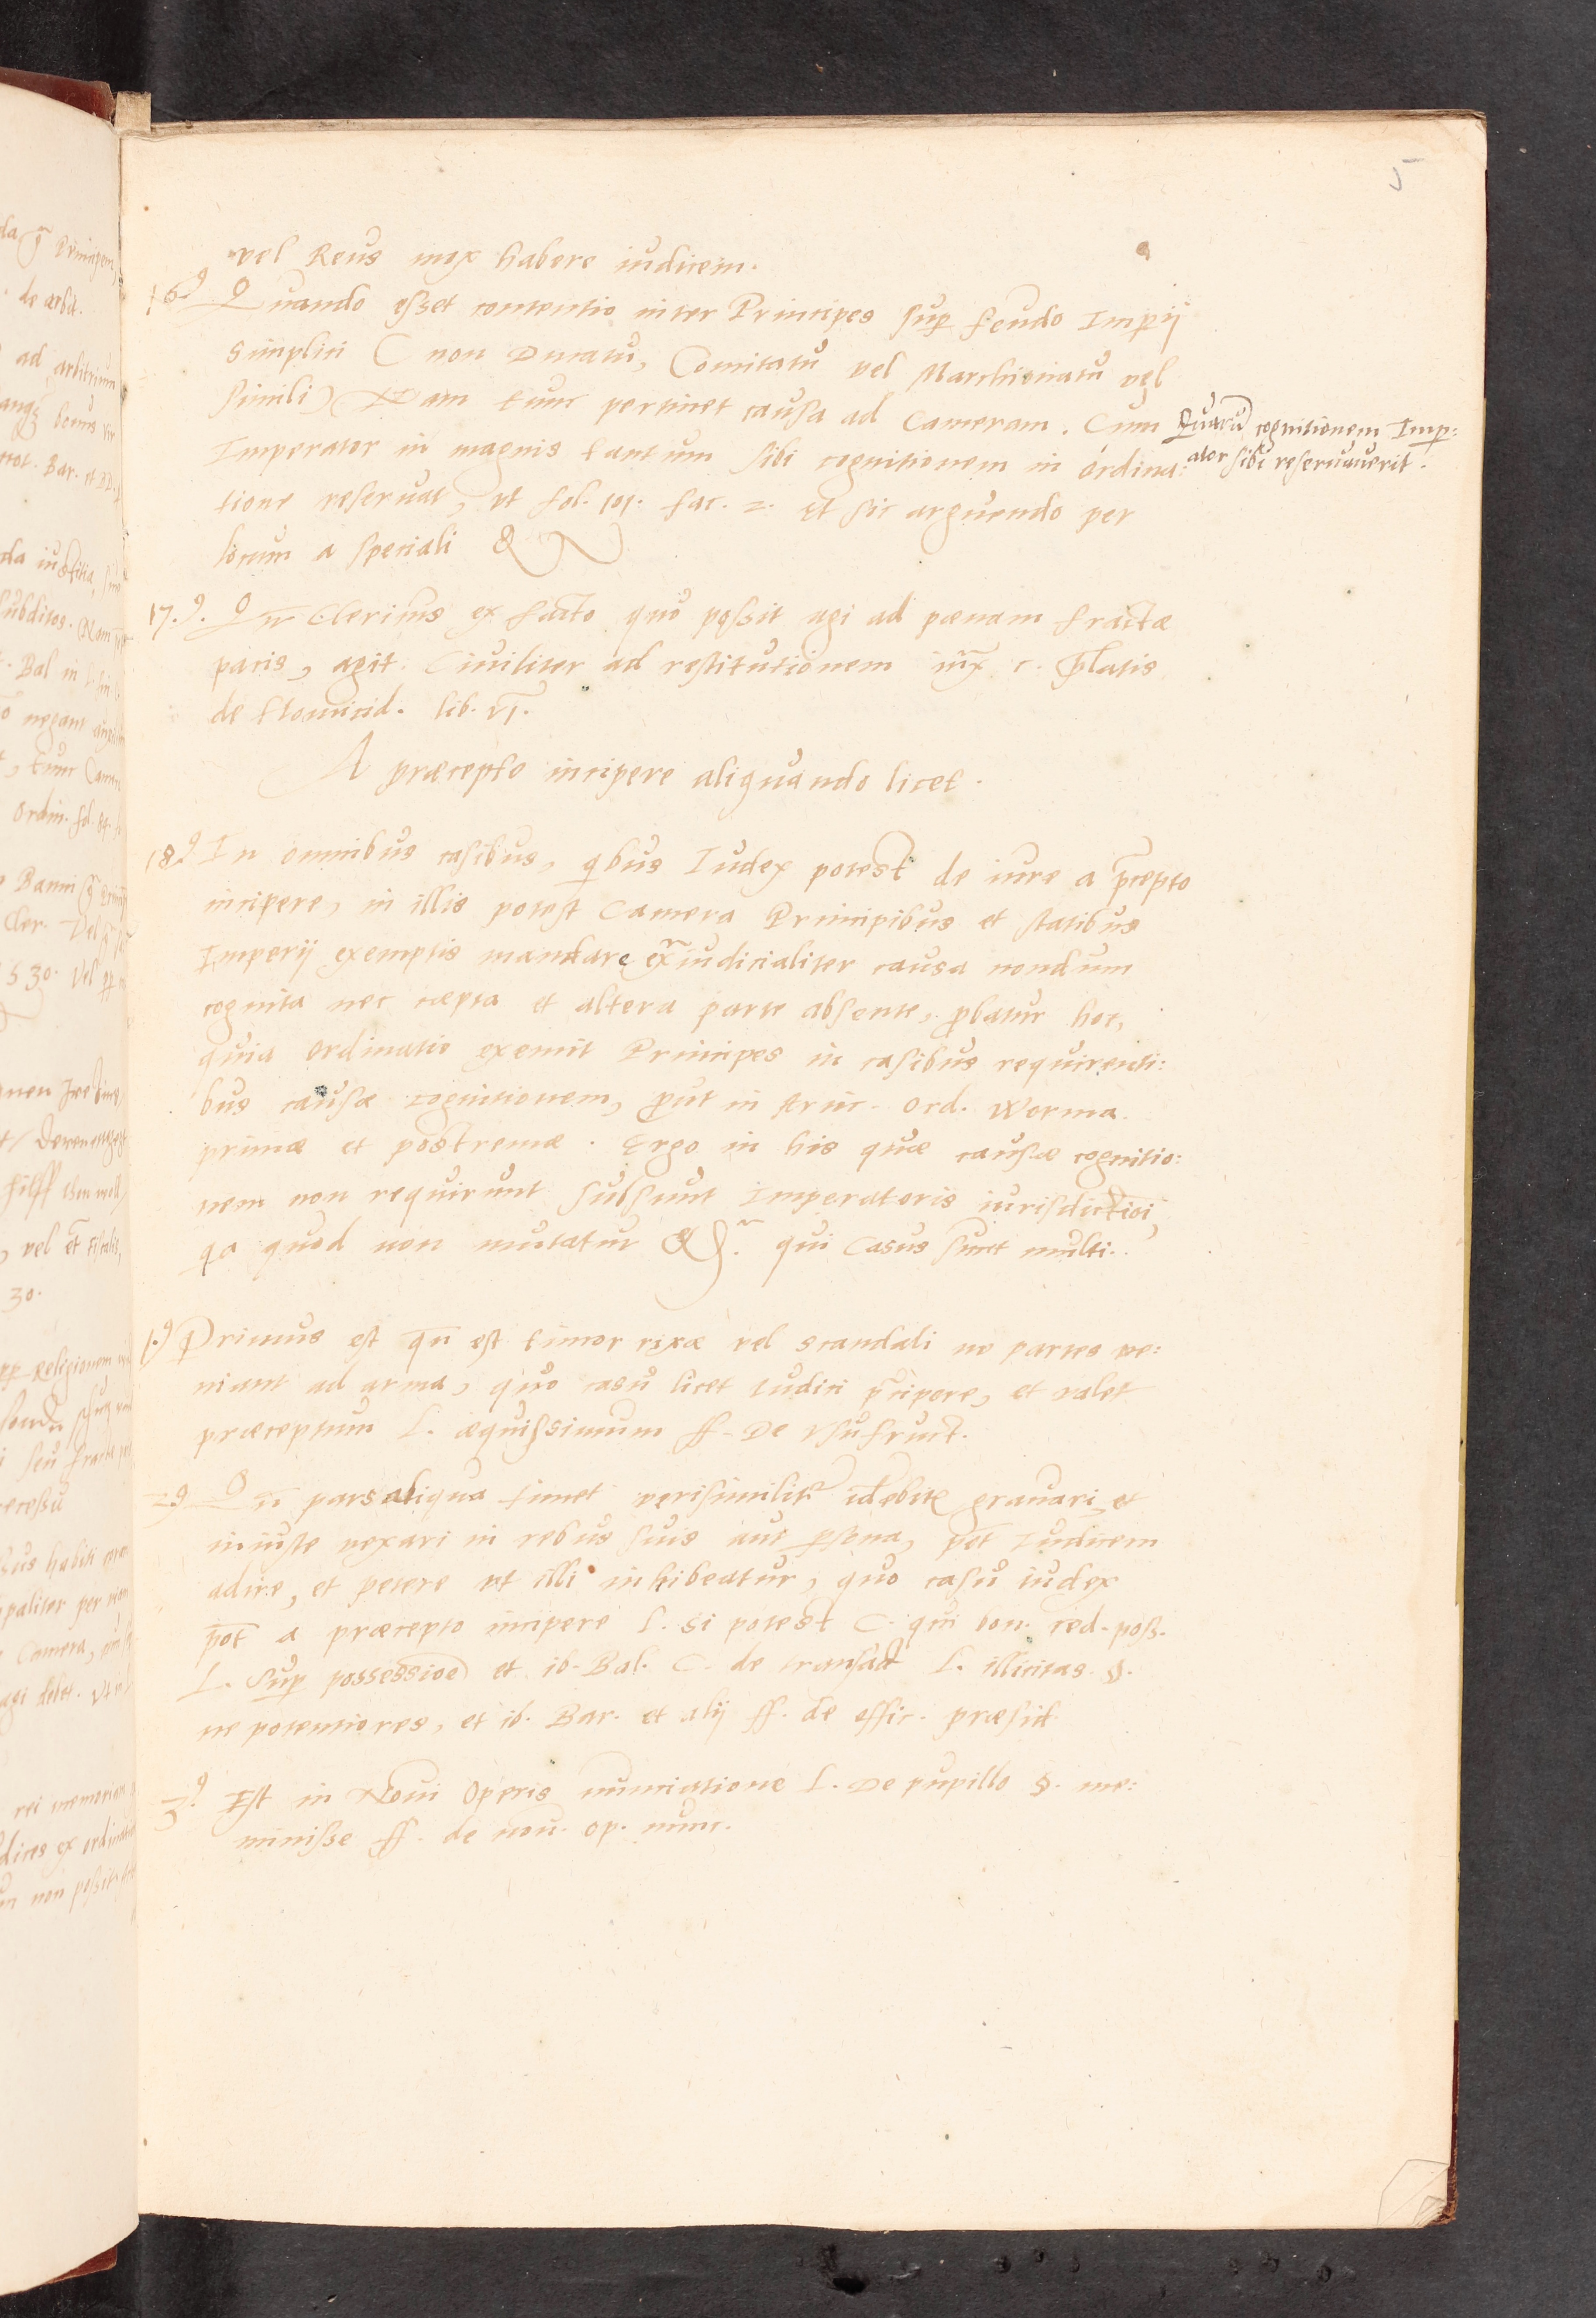 5
vel Reus mox habere iudicem.
16.9 Quando esset contentio inter Principes sup feudo Imperij
simplici (non Ducatu, Comitatu vel Marchionatu vel
simili) Nam tunc pertinet causa ad Cameram. Cum
Imperator in magnis tantum sibi cognitionem in ordina:
tione reseruat, vt fol. 101. fac. 2. Et sic arguendo per
locum a speciali &
Quarū cognitionem Imp:
ator sibi reseruauerit.
17.9. Qn Clericus ex facto quo possit agi ad pœnam fractæ
pacis, agit Ciuiliter ad restitutionem iux c. Prlatis
de Homicid. lib. VI.
A præcepto incipere aliquando licet.
18.9 In omnibus casibus, qbus Iudex potest de iure a prcepto
incipere, in illis potest Camera Principibus et statibus
Imperij exemptis mandare exiudicialiter causa nondum
cognita nec cœpta et altera parte absente, probatur hoc,
quia ordinatio exemit Principes in casibus requirenti:
bus causæ cognitionem, prout in Artic. Ord. Worma.
primæ et postremæ. Ergo in his quæ causæ cognitio:
nem non requirunt subsunt Imperatoris iurisdictioi,
qa quod non mutatur &. qui Casus sunt multi.
1.9 Primus est qn est timor rixæ vel scandali ne partes ve:
niant ad arma, quo casu licet Iudici prcipere, et valet
præceptum L. æquissimum ff. De Vsufruct.
2.9 Qn pars aliqua timet verisimilitr idebite grauari et
iniuste vexari in rebus suis aut psona, pot Iudicem
adire, et petere vt illi inhibeatur, quo casu iudex
pot a præcepto incipere L. si potest C. qui bon. ced. poss.
L. Sup possessioe et ib. Bal. C. de transact L. illicitas. §.
ne potentiores, et ib. Bar. et alij ff. de offic. præsid.
3.9 Est in Noui Operis nunciatione L. De pupillo §. me:
minisse ff. de nou. op. nunc.